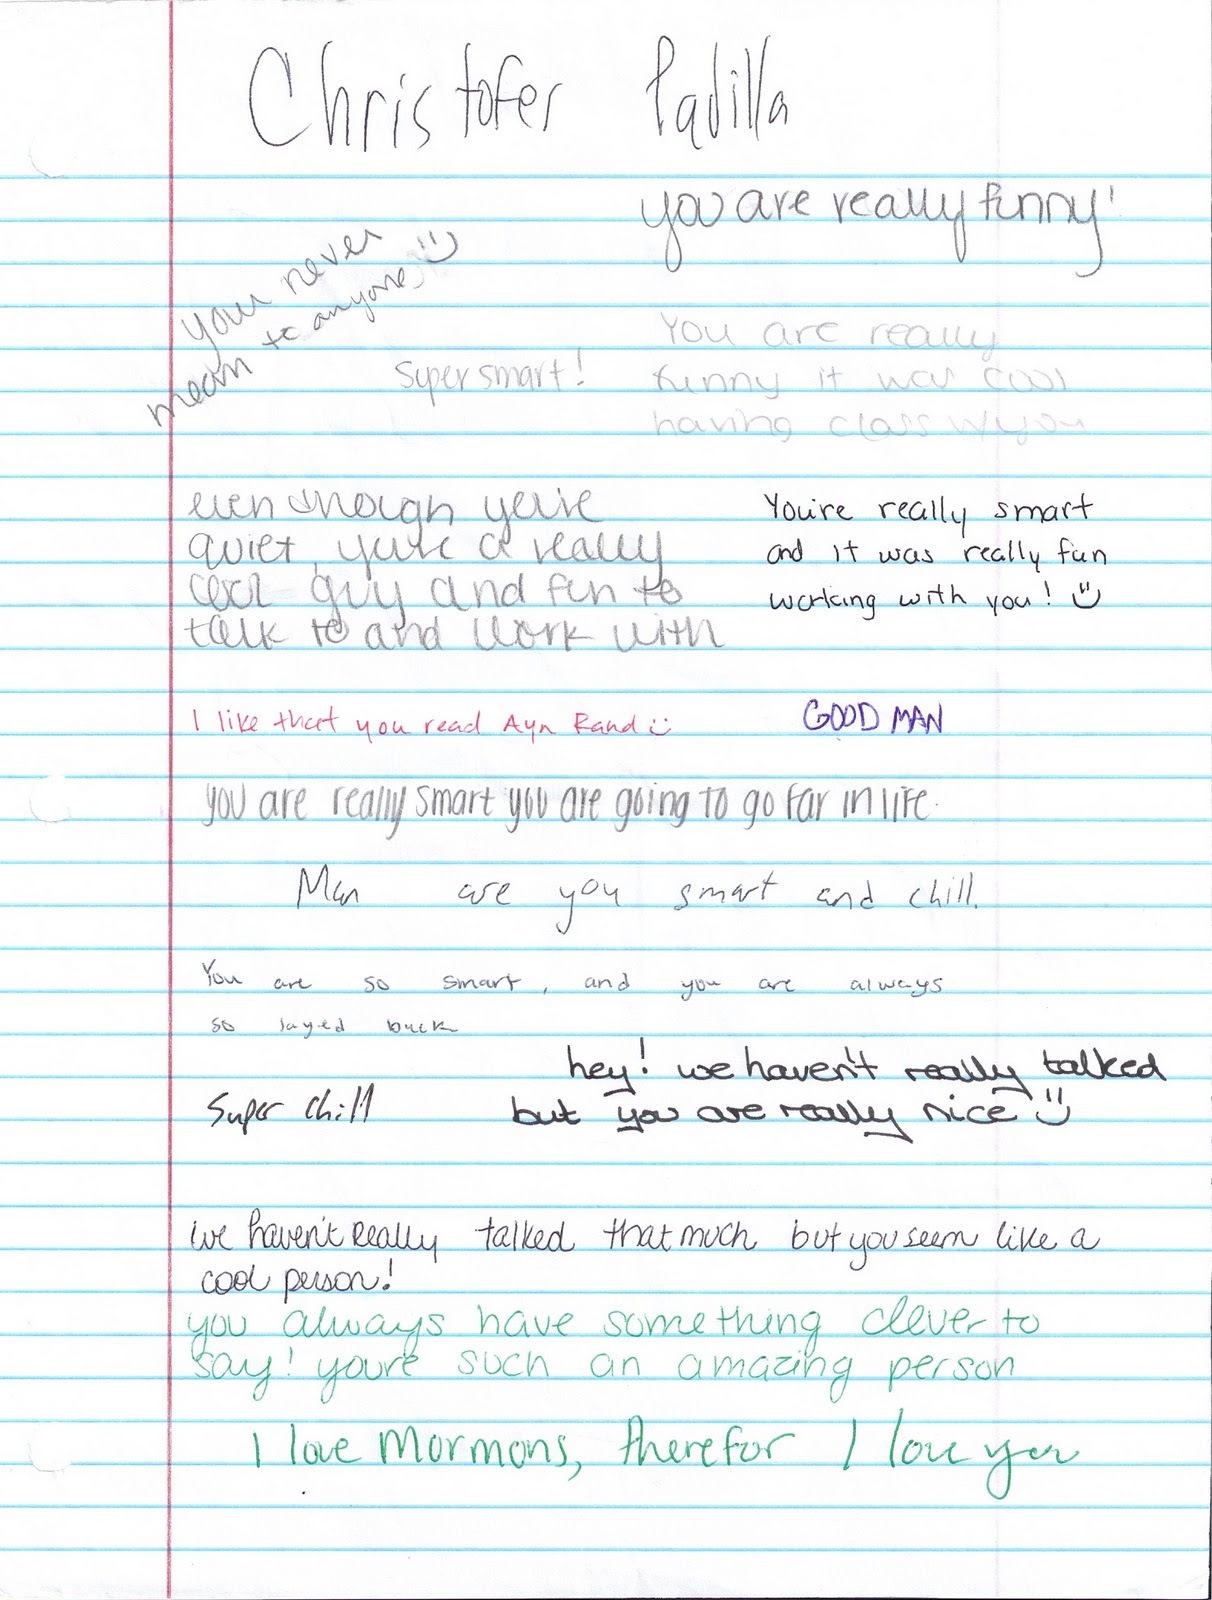 Christofer Padilla
you are really funny!
your never
mean to anyone :)
Super smart!
You are really
funny it was cool
having class w/ you
even though you're
quiet, you're a really
cool guy and fun to
talk to and work with
You're really smart
and it was really fun
working with you! :)
I like that you read Ayn Rand :)
GOOD MAN
you are really smart you are going to go far in life.
Man are you smart and chill.
You are so smart, and you are always
so layed back
Super chill
hey! we haven't really talked
but you are really nice :)
we haven't really talked that much but you seem like a
cool person!
you always have something clever to
say! you're such an amazing person
I love Mormons, therefor I love you